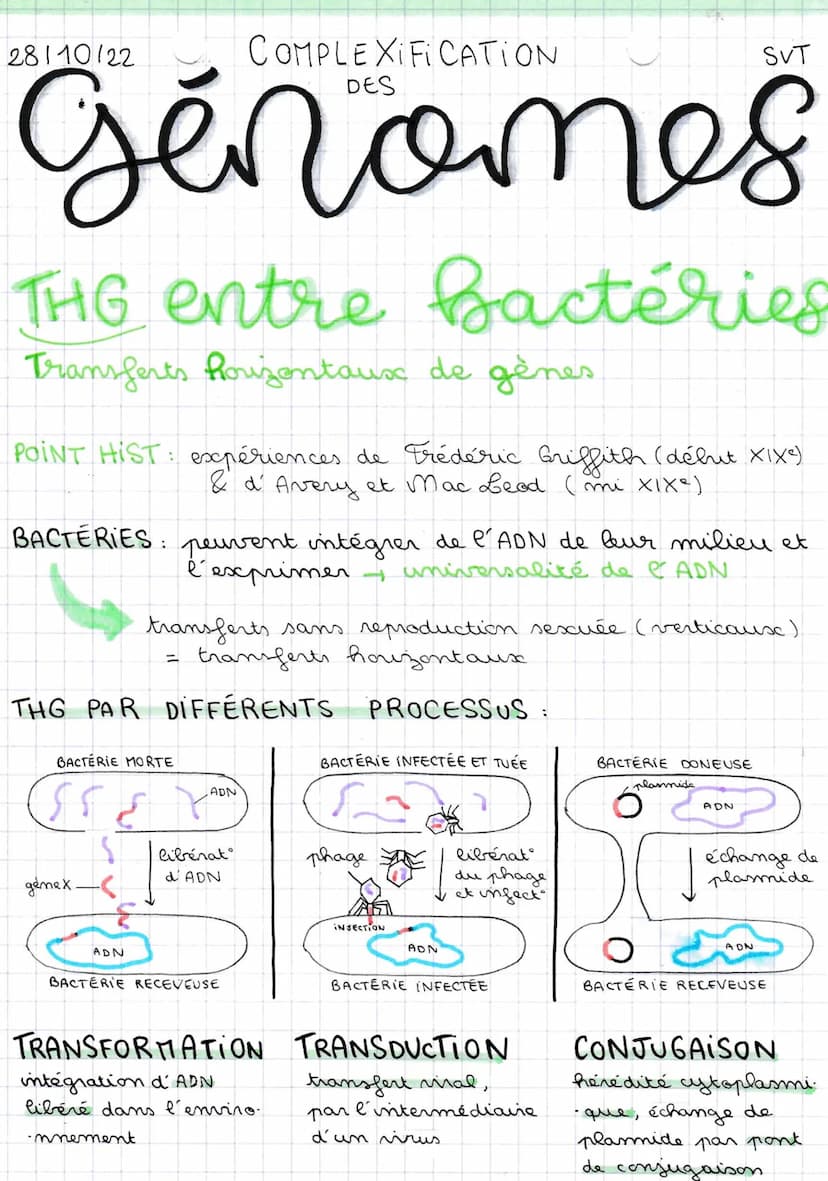 28/10/22 COMPLEXiFiCATiON SVT
DES
génomes
THG entre Bactéries
Transferts horizontaux de gènes
POiNT HiST : expériences de Frédéric Griffith (début XIXe)
& d'Avery et Mac Leod (mi XIXe)
BACTÉRiES : peuvent intégrer de l'ADN de leur milieu et
l'exprimer → universalité de l'ADN
transferts sans reproduction sexuée (verticaux)
= transferts horizontaux
THG PAR DiFFÉRENTS PROCESSUS :
BACTÉRiE MORTE
ADN
libérat°
d'ADN
gène X
ADN
BACTÉRiE RECEVEUSE
BACTÉRiE iNFECTÉE ET TUÉE
phage
libérat°
du phage
et infect°
iNJECTiON
ADN
BACTÉRiE iNFECTÉE
BACTÉRiE DONEUSE
plasmide
ADN
échange de
plasmide
ADN
BACTÉRiE RECEVEUSE
TRANSFORMATiON
intégration d'ADN
libéré dans l'enviro-
-nnement
TRANSDUCTiON
transfert viral,
par l'intermédiaire
d'un virus
CONJUGAiSON
hérédité cytoplasmi-
-que, échange de
plasmide par pont
de conjugaison